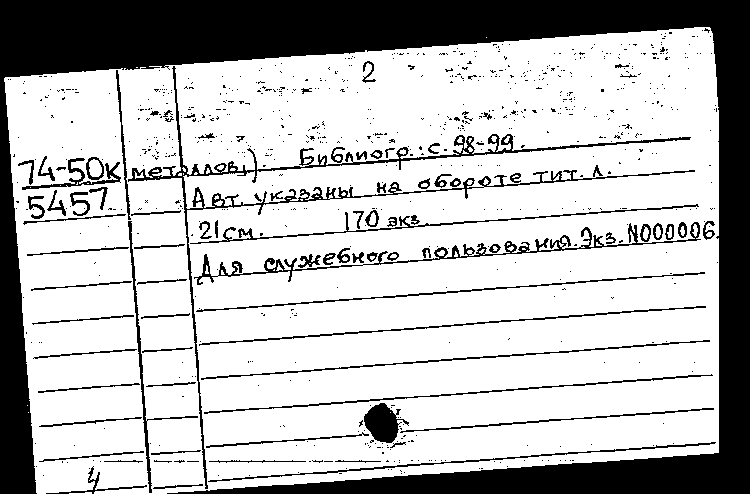 2
74-50к металлов). Библиогр.: с. 98-99.
5457 Авт. указаны на обороте тит. л.
21 см. 170 экз.
Для служебного пользования. Экз. N000006.
4